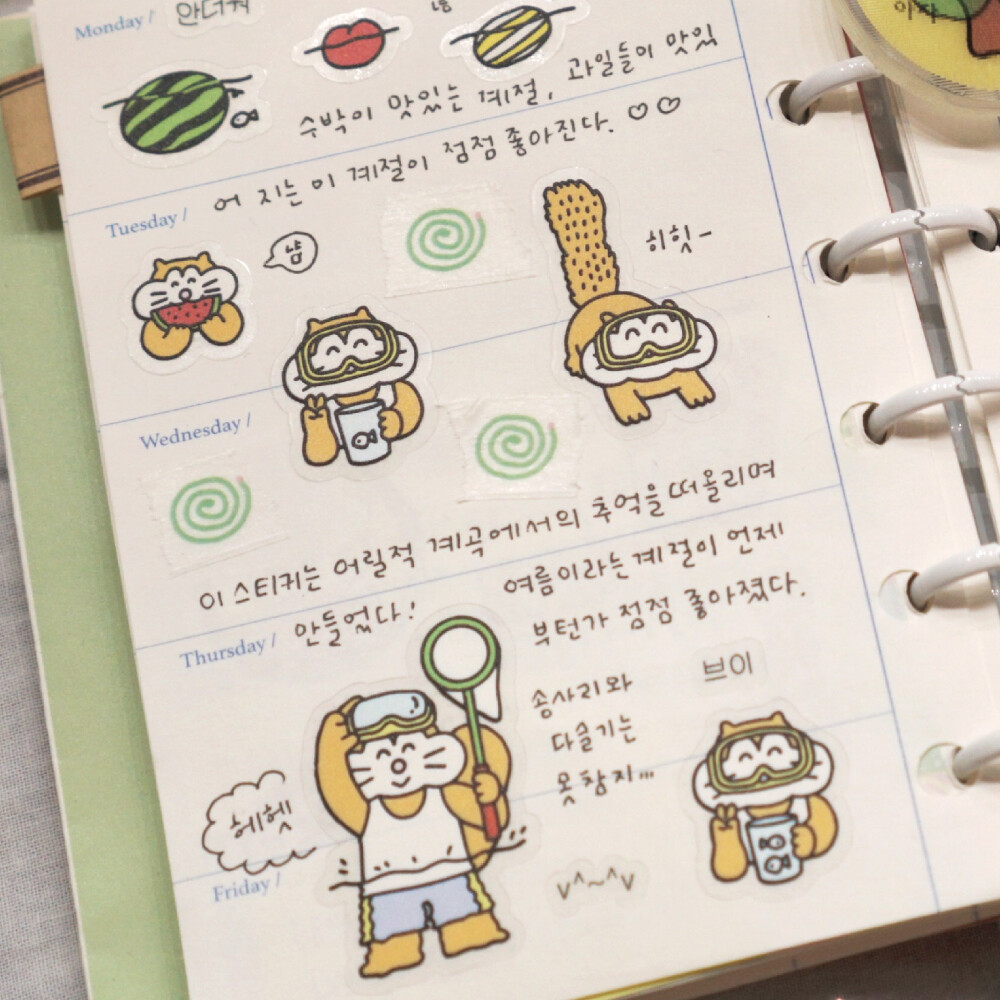 Monday /
안더워
수박이 맛있는 계절, 과일들이 맛있
어 지는 이 계절이 점점 좋아진다. ♡♡
Tuesday /
냠
히힛~
Wednesday /
이 스티커는 어릴적 계곡에서의 추억을 떠올리며
만들었다!
여름이라는 계절이 언제
부턴가 점점 좋아졌다.
Thursday /
송사리와
다슬기는
못참지...
브이
헤헷
Friday /
v^~^v